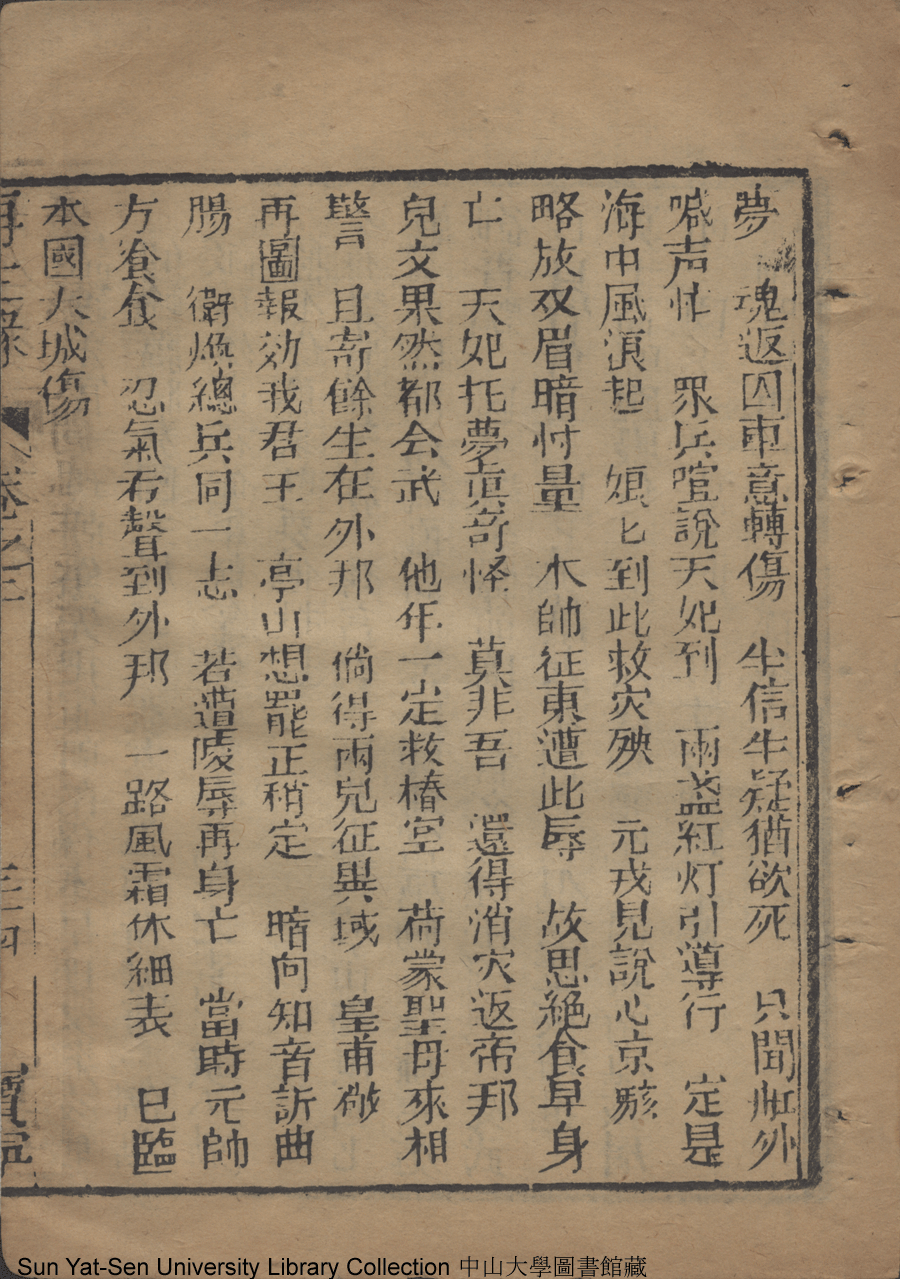 夢　魂返囚車意轉傷　半信半疑猶欲死　只聞舡外
喊声忙　眾兵喧說天妃到　兩盞紅灯引導行　定是
海中風浪起　娘匕到此救灾殃　元戎見說心京駭
略放双眉暗忖量　本帥征東遭此辱　故思絕食早身
亡　天妃托夢真奇怪　莫非吾　還得消灾返帝邦
兒文果然都会武　他年一定救椿堂　荷蒙聖母來相
警　且寄餘生在外邦　倘得兩兒征異域　皇甫敬
再圖報効我君王　亭山想罷正稍定　暗向知音訴曲
腸　衛煥總兵同一志　若遭陵辱再身亡　當時元帥
方飱食　忍氣吞聲到外邦　一路風霜休細表　已臨
本國大城傷
再生緣　卷之三　三十四　寶寧
Sun Yat-Sen University Library Collection 中山大學圖書館藏